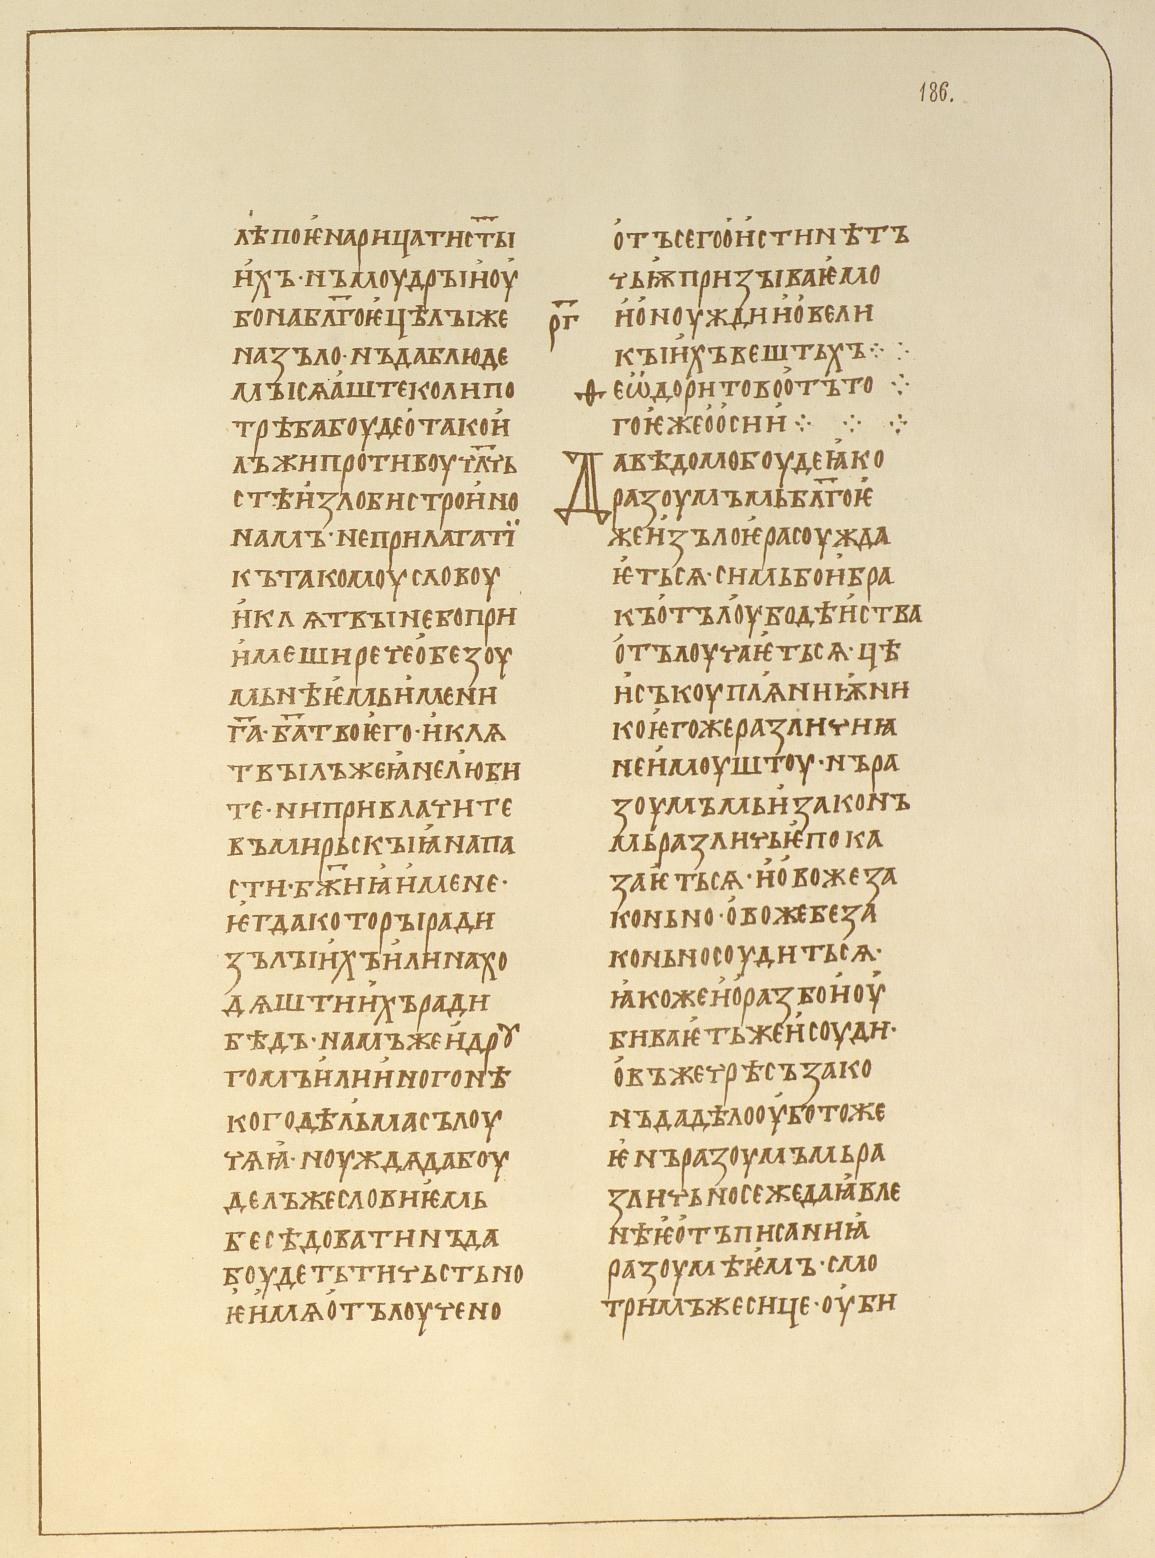 186.
лѣпоѥнарицатист҃ы
ихъ·нъмоудрыіноу
бонабл҃гоѥцѣлыже
назъло·нъдаблюде
мъісѧаштеколипо
трѣбабоудеотакои
лъжипротивоучл҃чь
стѣизлобистроино
намъ·неприлагатї
кътакомоусловоу
иклѧтвъінебопри
имеширечеобезоу
мьнѣѥмьимени
г҃а·б҃атвоѥго·иклѧ
твъілъжеꙗнелюби
те·нипривлачите
въмирьскъіꙗнапа
сти·бж҃иꙗимене·
ѥгдакоторъіради
зълъіихъилинахо
дѧштиихъради
бѣдъ·намъжеидрꙋ
гомъилииногонѣ
когодѣльмасълоу
чѧꙗ·ноуждѧдабоу
делъжесловиѥмь
бесѣдоватинъда
боудетьтичьстьно
ѥимѧотълоучено
отъсегооистинѣтъ
чьѭпризъіваѥмо
р҃г иноноуждиновели
къіихъвештьхъ⁘ ⁘
ѳеѡдоритовоотъто ⁘
гоѥжеоосии⁘ ⁘ ⁘
Давѣдомобоудеꙗко
разоумъмьбл҃гоѥ
жеизълоѥрасоужда
ѥтьсѧ·симьбоибра
къотълоубодѣиства
отълоучаѥтьсѧ·цѣ
исъкоуплѧниѭни
коѥгожеразличиꙗ
неимоуштоу·нъра
зоумъмьизаконъ
мьразличьѥпока
заѥтьсѧ·иовожеза
коньно·овожебеза
коньносоудитьсѧ·
ꙗкожеиоразбоиоу
биваѥтьжеисоуди·
овъжечрѣсъзако
нъдадѣлооуботоже
ѥнъразоумъмьра
зличьносежедаꙗвле
нѣѥотъписаниꙗ
разоумѣѥмъ·смо
тримъжесице·оуби